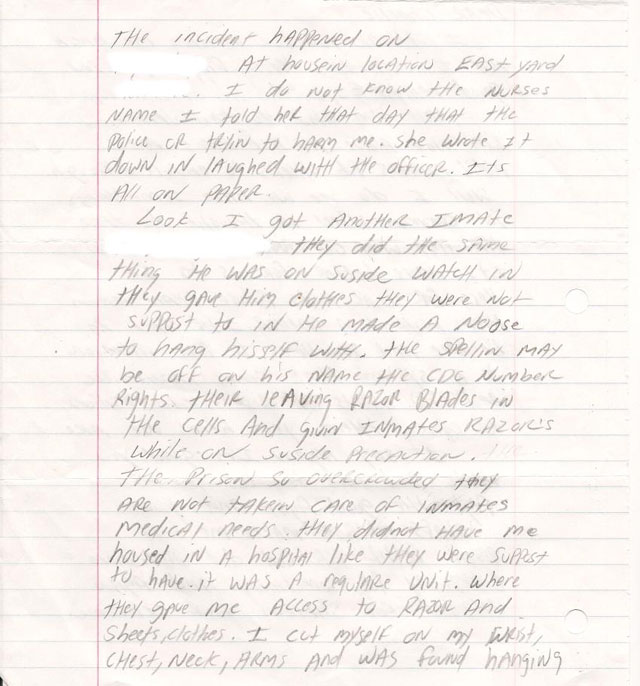 THE incident HAPPENED ON
At housein location EAST yard
I do not know the Nurses
NAME I told her that day that the
Police or tryin to harm me. She wrote it
down in laughed with the officer. Its
All on PAPER.
Look I got Another Imate
they did the same
thing He was on suside watch in
they gave Him clothes they were not
suppost to in He made A Noose
to hang hisself with. the spellin may
be off on his name the CDC Number
Rights. Their leaving RAZOR Blades in
the cells And givin INMATES RAZOR'S
while on suside Precaution.
The Prison so overcrowded they
ARE Not takein care of inmates
medical needs. they didnot Have me
housed in a hospital like they were suppost
to have. it was a regulare unit. where
they gave me Access to RAZOR And
sheets, clothes. I cut myself on my wrist,
chest, neck, arms and was found hanging